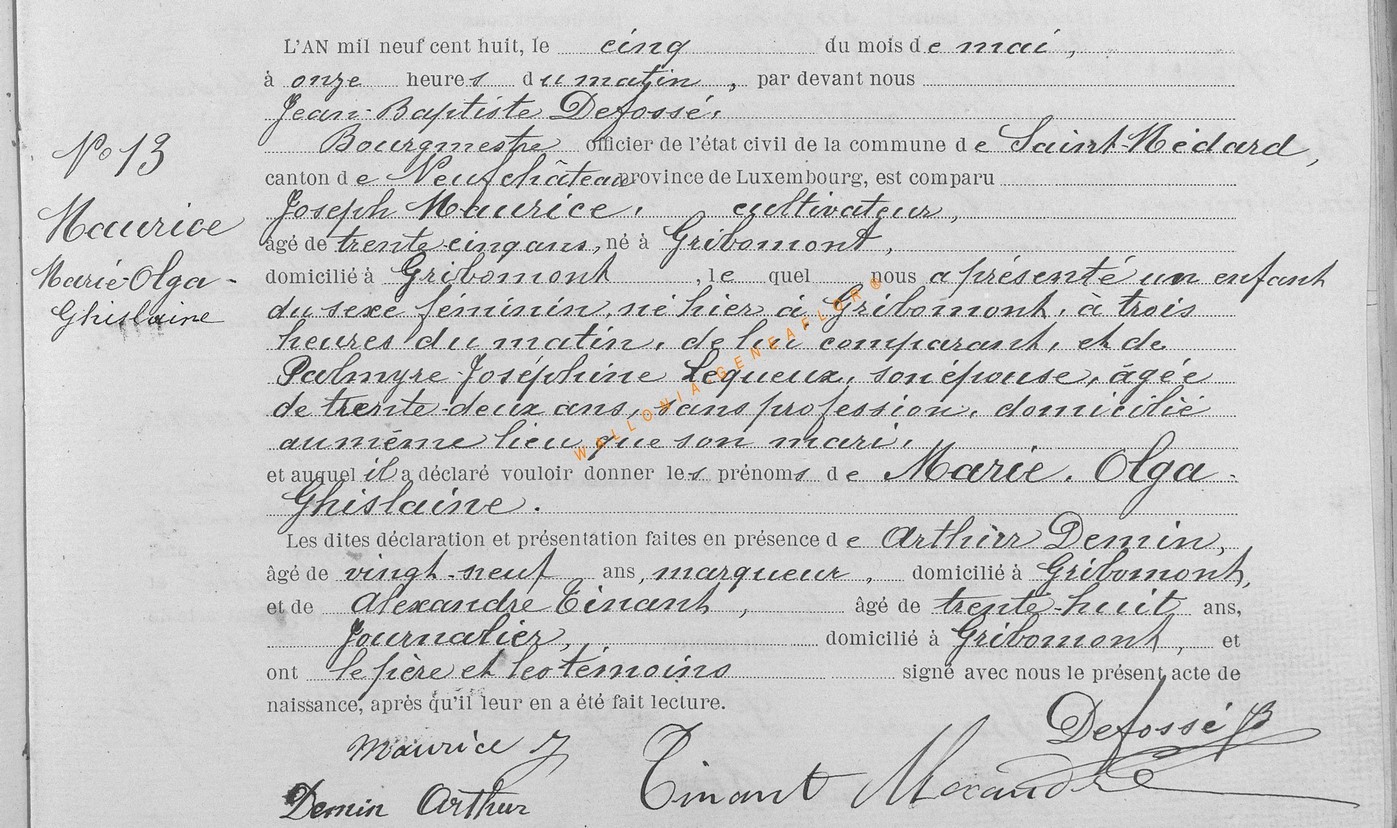 L'AN mil neuf cent huit, le cinq du mois de mai,
à onze heures du matin, par devant nous
Jean-Baptiste Defossé,
Bourgmestre officier de l'état civil de la commune de Saint-Médard,
canton de Neufchâteau province de Luxembourg, est comparu
Joseph Maurice, cultivateur,
âgé de trente-cinq ans, né à Gribomont,
domicilié à Gribomont, lequel nous a présenté un enfant
du sexe féminin, né hier à Gribomont, à trois
heures du matin, de lui comparant, et de
Palmyre-Joséphine Lequeux, son épouse, âgée
de trente-deux ans, sans profession, domicilié
au même lieu que son mari,
et auquel il a déclaré vouloir donner les prénoms de Marie-Olga-
Ghislaine.
Les dites déclaration et présentation faites en présence de Arthur Demin,
âgé de vingt-neuf ans, marqueur, domicilié à Gribomont,
et de Alexandre Tinant, âgé de trente-huit ans,
Journalier, domicilié à Gribomont, et
ont le père et les témoins signé avec nous le présent acte de
naissance, après qu'il leur en a été fait lecture.
N° 13
Maurice
Marie-Olga-
Ghislaine
Defossé JB
Maurice J
Tinant Alexandre
Demin Arthur
WALLONIA GENEAFLOR ©